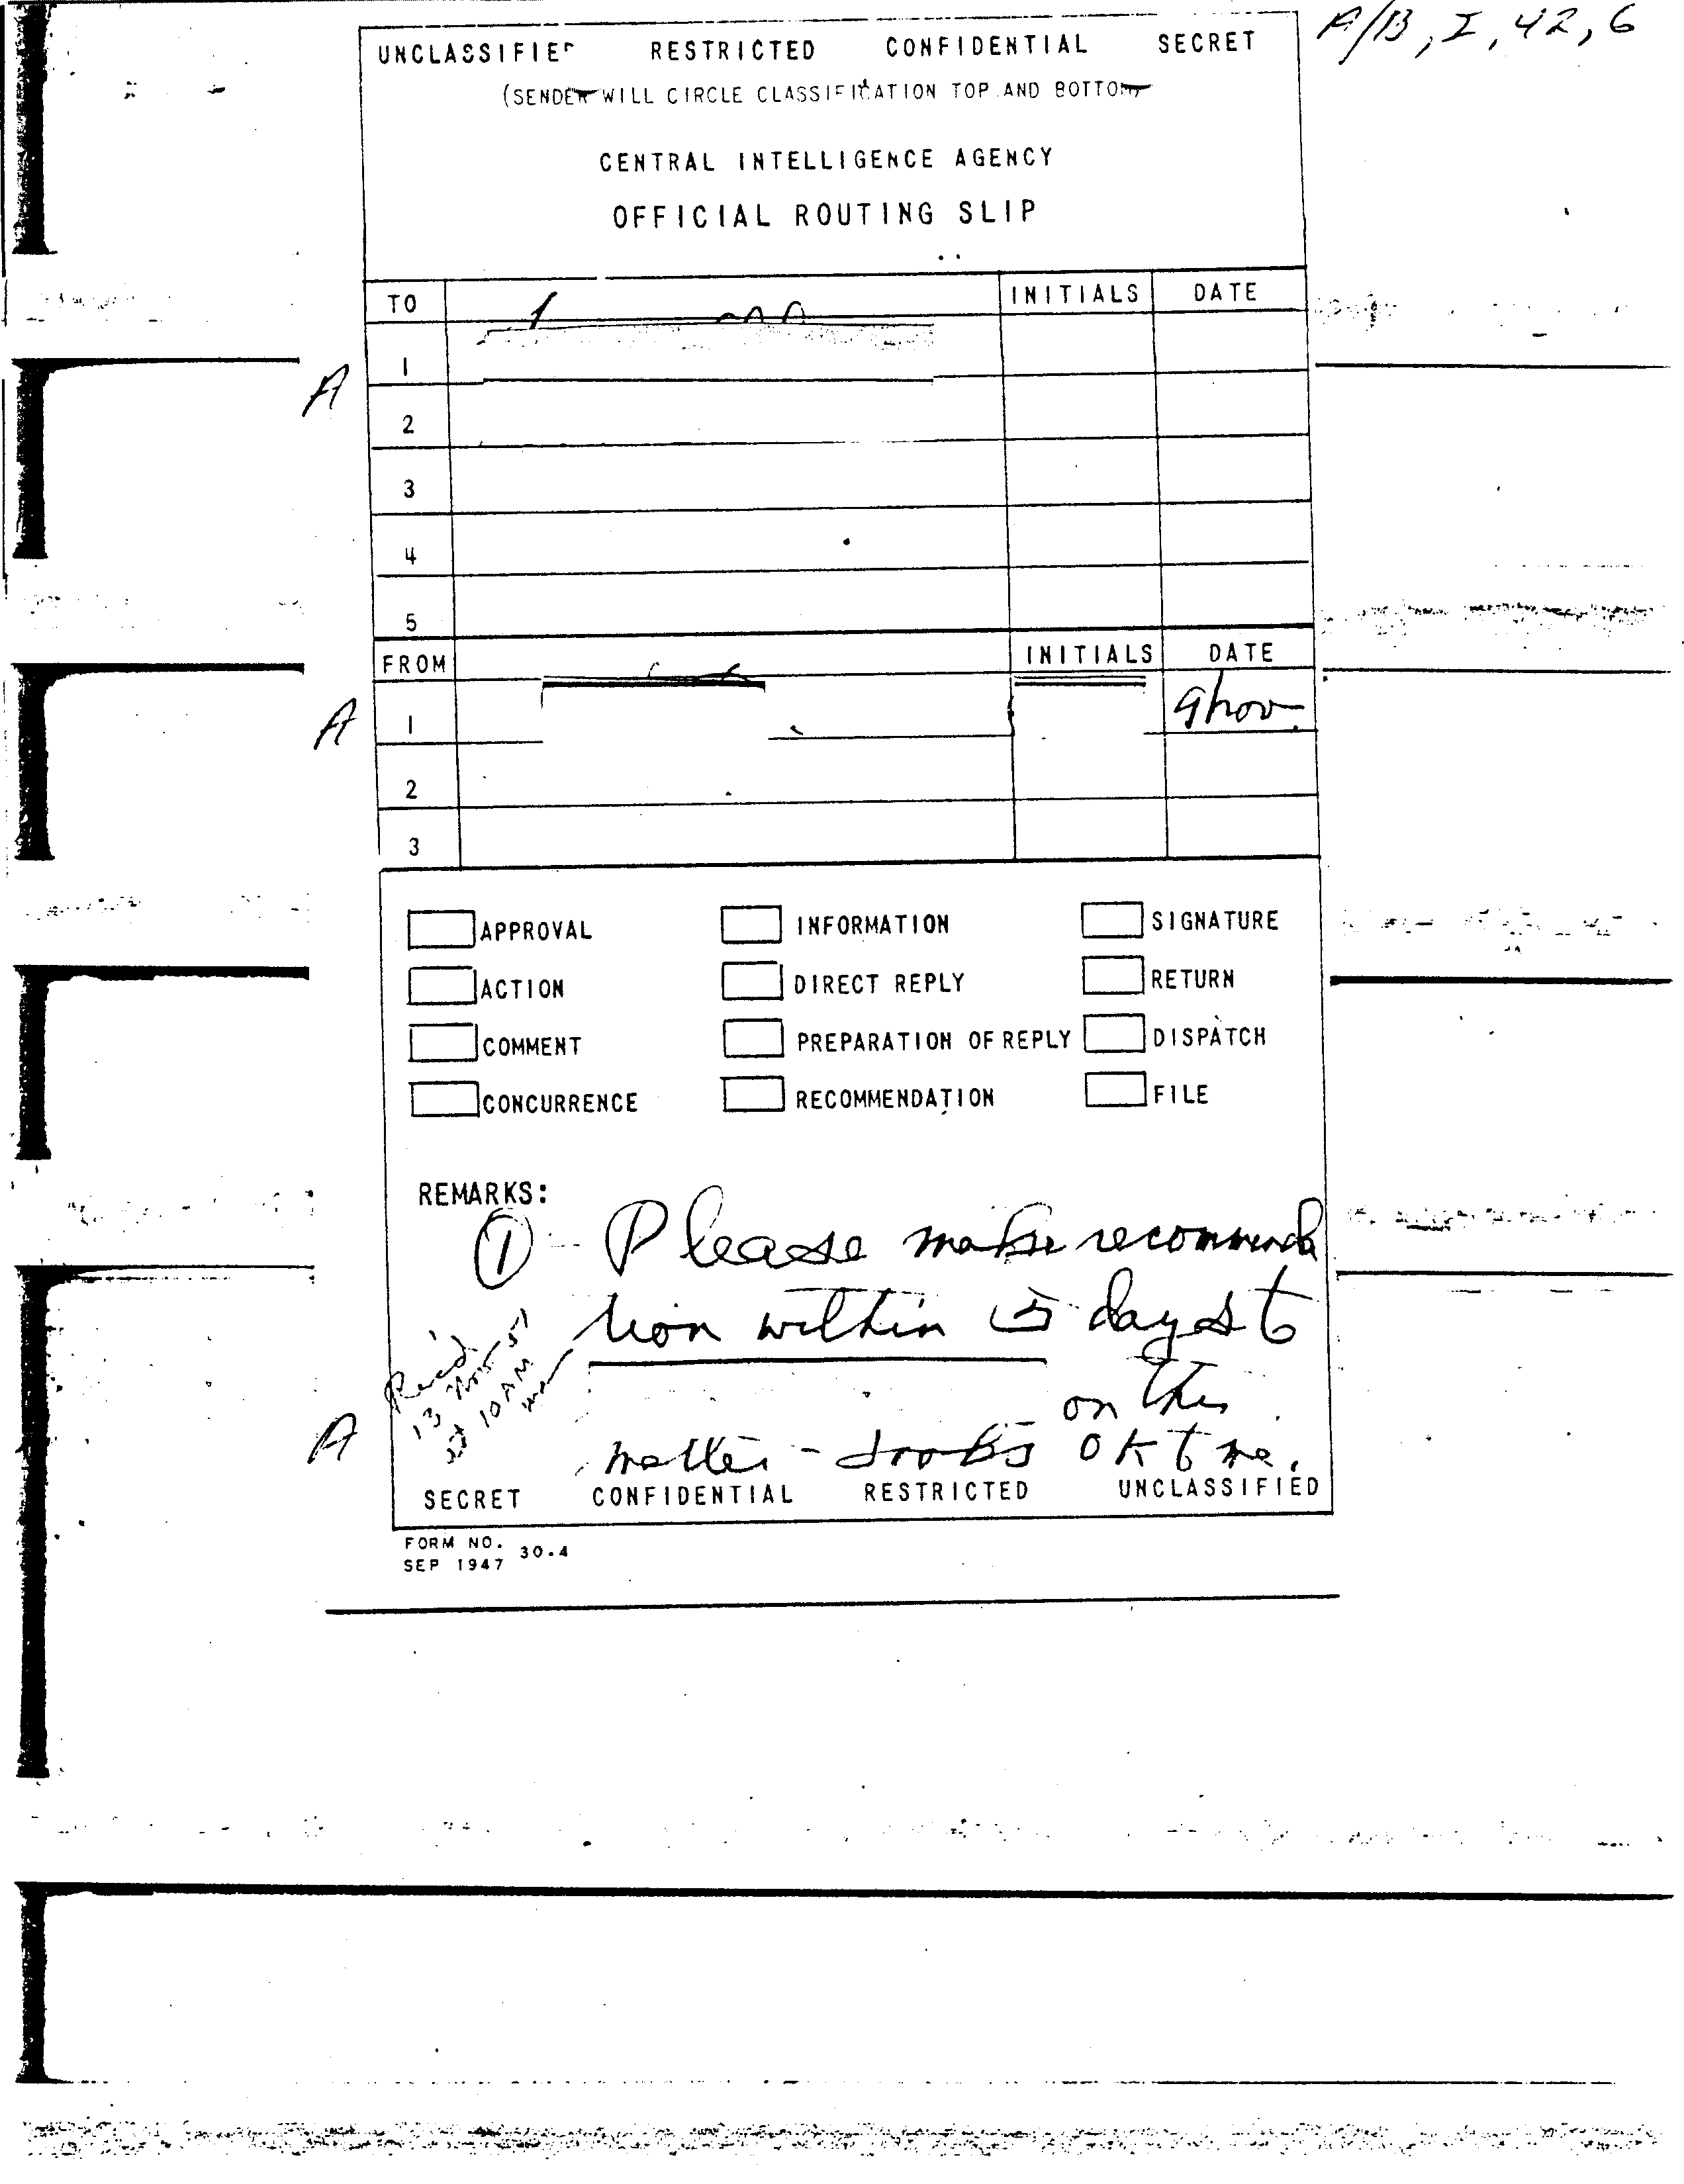 A/B, I, 42, 6
UNCLASSIFIED RESTRICTED CONFIDENTIAL SECRET
(SENDER WILL CIRCLE CLASSIFICATION TOP AND BOTTOM)
CENTRAL INTELLIGENCE AGENCY
OFFICIAL ROUTING SLIP
TO INITIALS DATE
A 1
2
3
4
5
FROM INITIALS DATE
A 1 9 nov.
2
3
APPROVAL INFORMATION SIGNATURE
ACTION DIRECT REPLY RETURN
COMMENT PREPARATION OF REPLY DISPATCH
CONCURRENCE RECOMMENDATION FILE
REMARKS:
1 - Please make recommenda
tion within 5 days to
on this
matter - looks OK to me.
Rec'd
13 Nov 51
at 10 AM
A
SECRET CONFIDENTIAL RESTRICTED UNCLASSIFIED
FORM NO. 30.4
SEP 1947